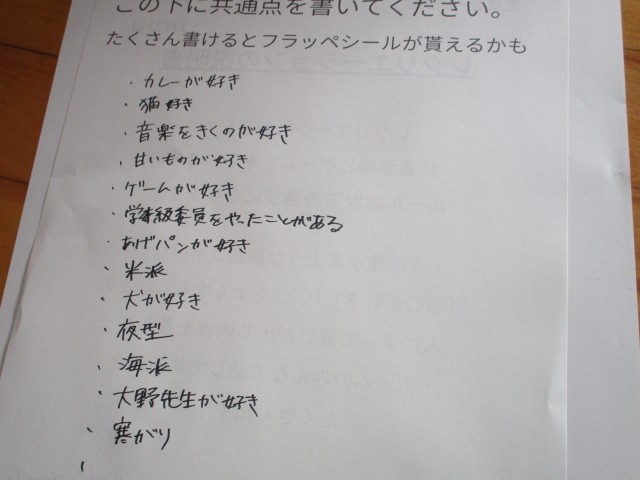 この下に共通点を書いてください。
たくさん書けるとフラッペシールが貰えるかも
・カレーが好き
・猫好き
・音楽をきくのが好き
・甘いものが好き
・ゲームが好き
・学級委員をやったことがある
・あげパンが好き
・米派
・犬が好き
・夜型
・海派
・大野先生が好き
・寒がり